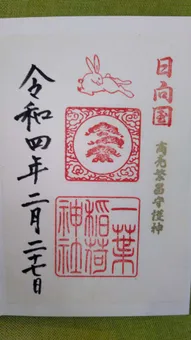 日向國
商売繁昌守護神
一葉
稲荷
神社
令和四年二月二十七日